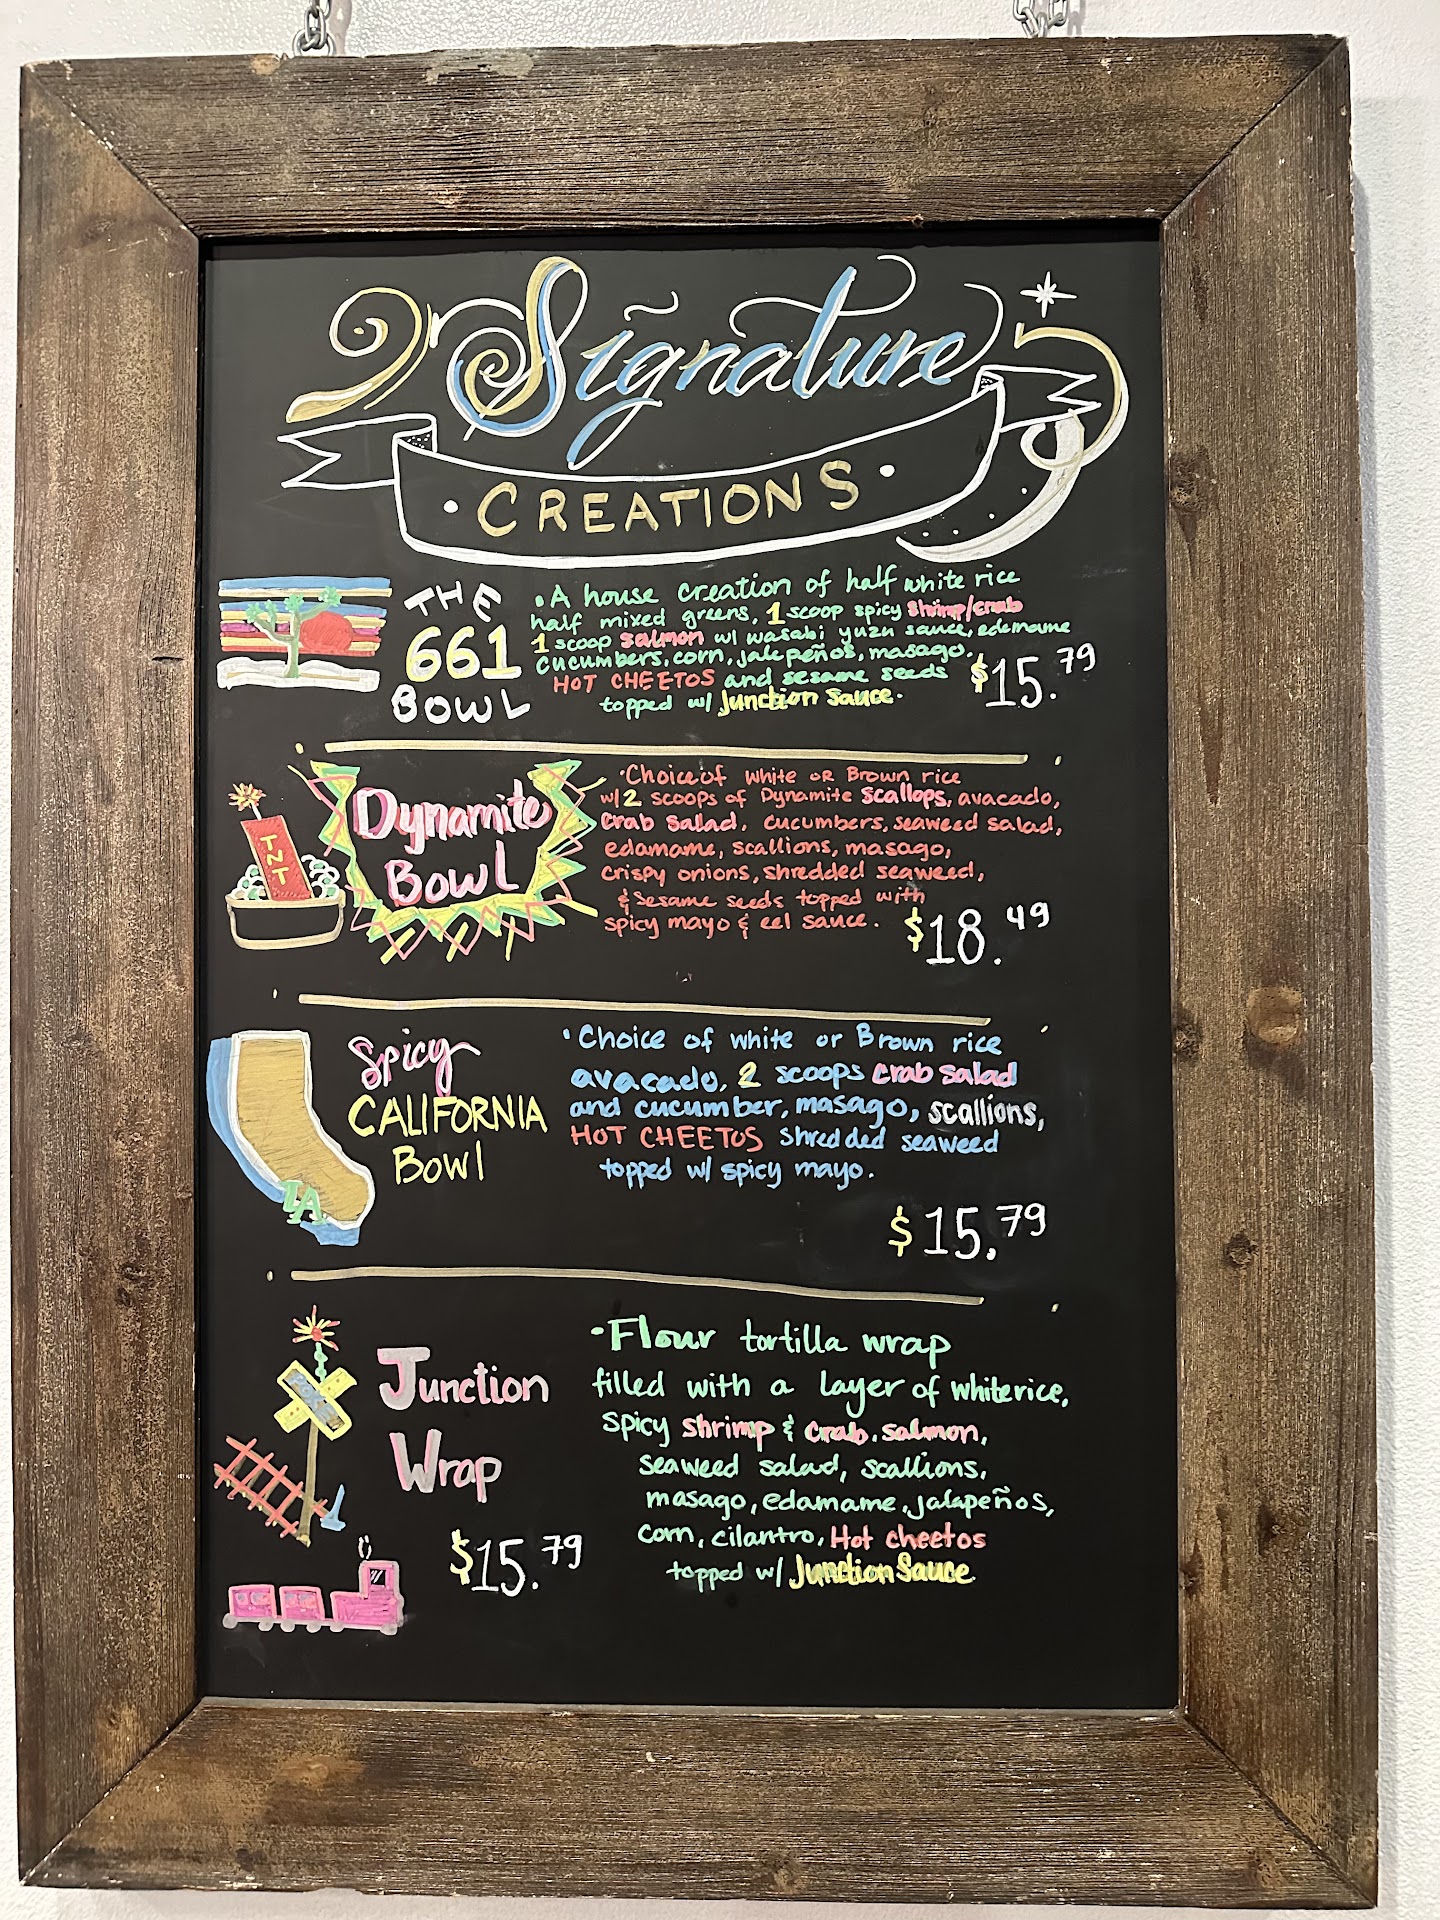 Signature
· CREATIONS ·
THE
661
BOWL
• A house creation of half white rice
half mixed greens, 1 scoop spicy shrimp/crab
1 scoop salmon w/ wasabi yuzu sauce, edamame
cucumbers, corn, jalepeños, masago.
HOT CHEETOS and sesame seeds
topped w/ Junction Sauce.
$15.79
TNT
Dynamite
Bowl
• Choice of white OR Brown rice
w/ 2 scoops of Dynamite Scallops, avacado,
Crab Salad, cucumbers, seaweed salad,
edamame, scallions, masago,
crispy onions, shredded seaweed,
& Sesame seeds topped with
spicy mayo & eel sauce.
$18.49
LA
Spicy
CALIFORNIA
Bowl
• Choice of white or Brown rice
avacado, 2 scoops crab salad
and cucumber, masago, scallions,
HOT CHEETOS shredded seaweed
topped w/ spicy mayo.
$15.79
Junction
Wrap
$15.79
• Flour tortilla wrap
filled with a layer of white rice,
spicy shrimp & crab, salmon,
seaweed salad, scallions,
masago, edamame, jalapeños,
corn, cilantro, Hot cheetos
topped w/ Junction Sauce